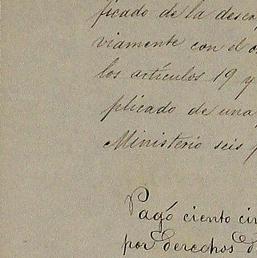 ficado de la desc
viamente con el o
los artículos 19 y
plicado de una
Ministerio seis p
Pagó ciento cin
por derechos d